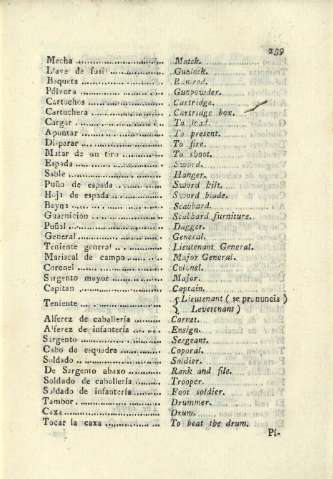 239
Mecha .......... Match.
Llave de fusil .......... Gunlock.
Baqueta .......... Ramrod.
Pólvora .......... Gunpowder.
Cartuchos .......... Cartridge.
Cartuchera .......... Cartridge box.
Cargar .......... To load.
Apuntar .......... To present.
Disparar .......... To fire.
Matar de un tiro .......... To shoot.
Espada .......... Sword.
Sable .......... Hanger.
Puño de espada .......... Sword hilt.
Hoja de espada .......... Sword blade.
Bayna .......... Scabbard.
Guarnicion .......... Scabbard furniture.
Puñal .......... Dagger.
General .......... General.
Teniente general .......... Lieutenant General.
Mariscal de campo .......... Major General.
Coronel .......... Colonel.
Sargento mayor .......... Major.
Capitan .......... Captain.
Teniente .......... { Lieutenant ( se pronuncia )
Levetenant )
Alferez de caballería .......... Cornet.
Alferez de infantería .......... Ensign.
Sargento .......... Sergeant.
Cabo de esquadra .......... Coporal.
Soldado .......... Soldier.
De Sargento abaxo .......... Rank and file.
Soldado de caballería .......... Trooper.
Soldado de infantería .......... Foot soldier.
Tambor .......... Drummer.
Caxa .......... Drum.
Tocar la caxa .......... To beat the drum.
Pí-